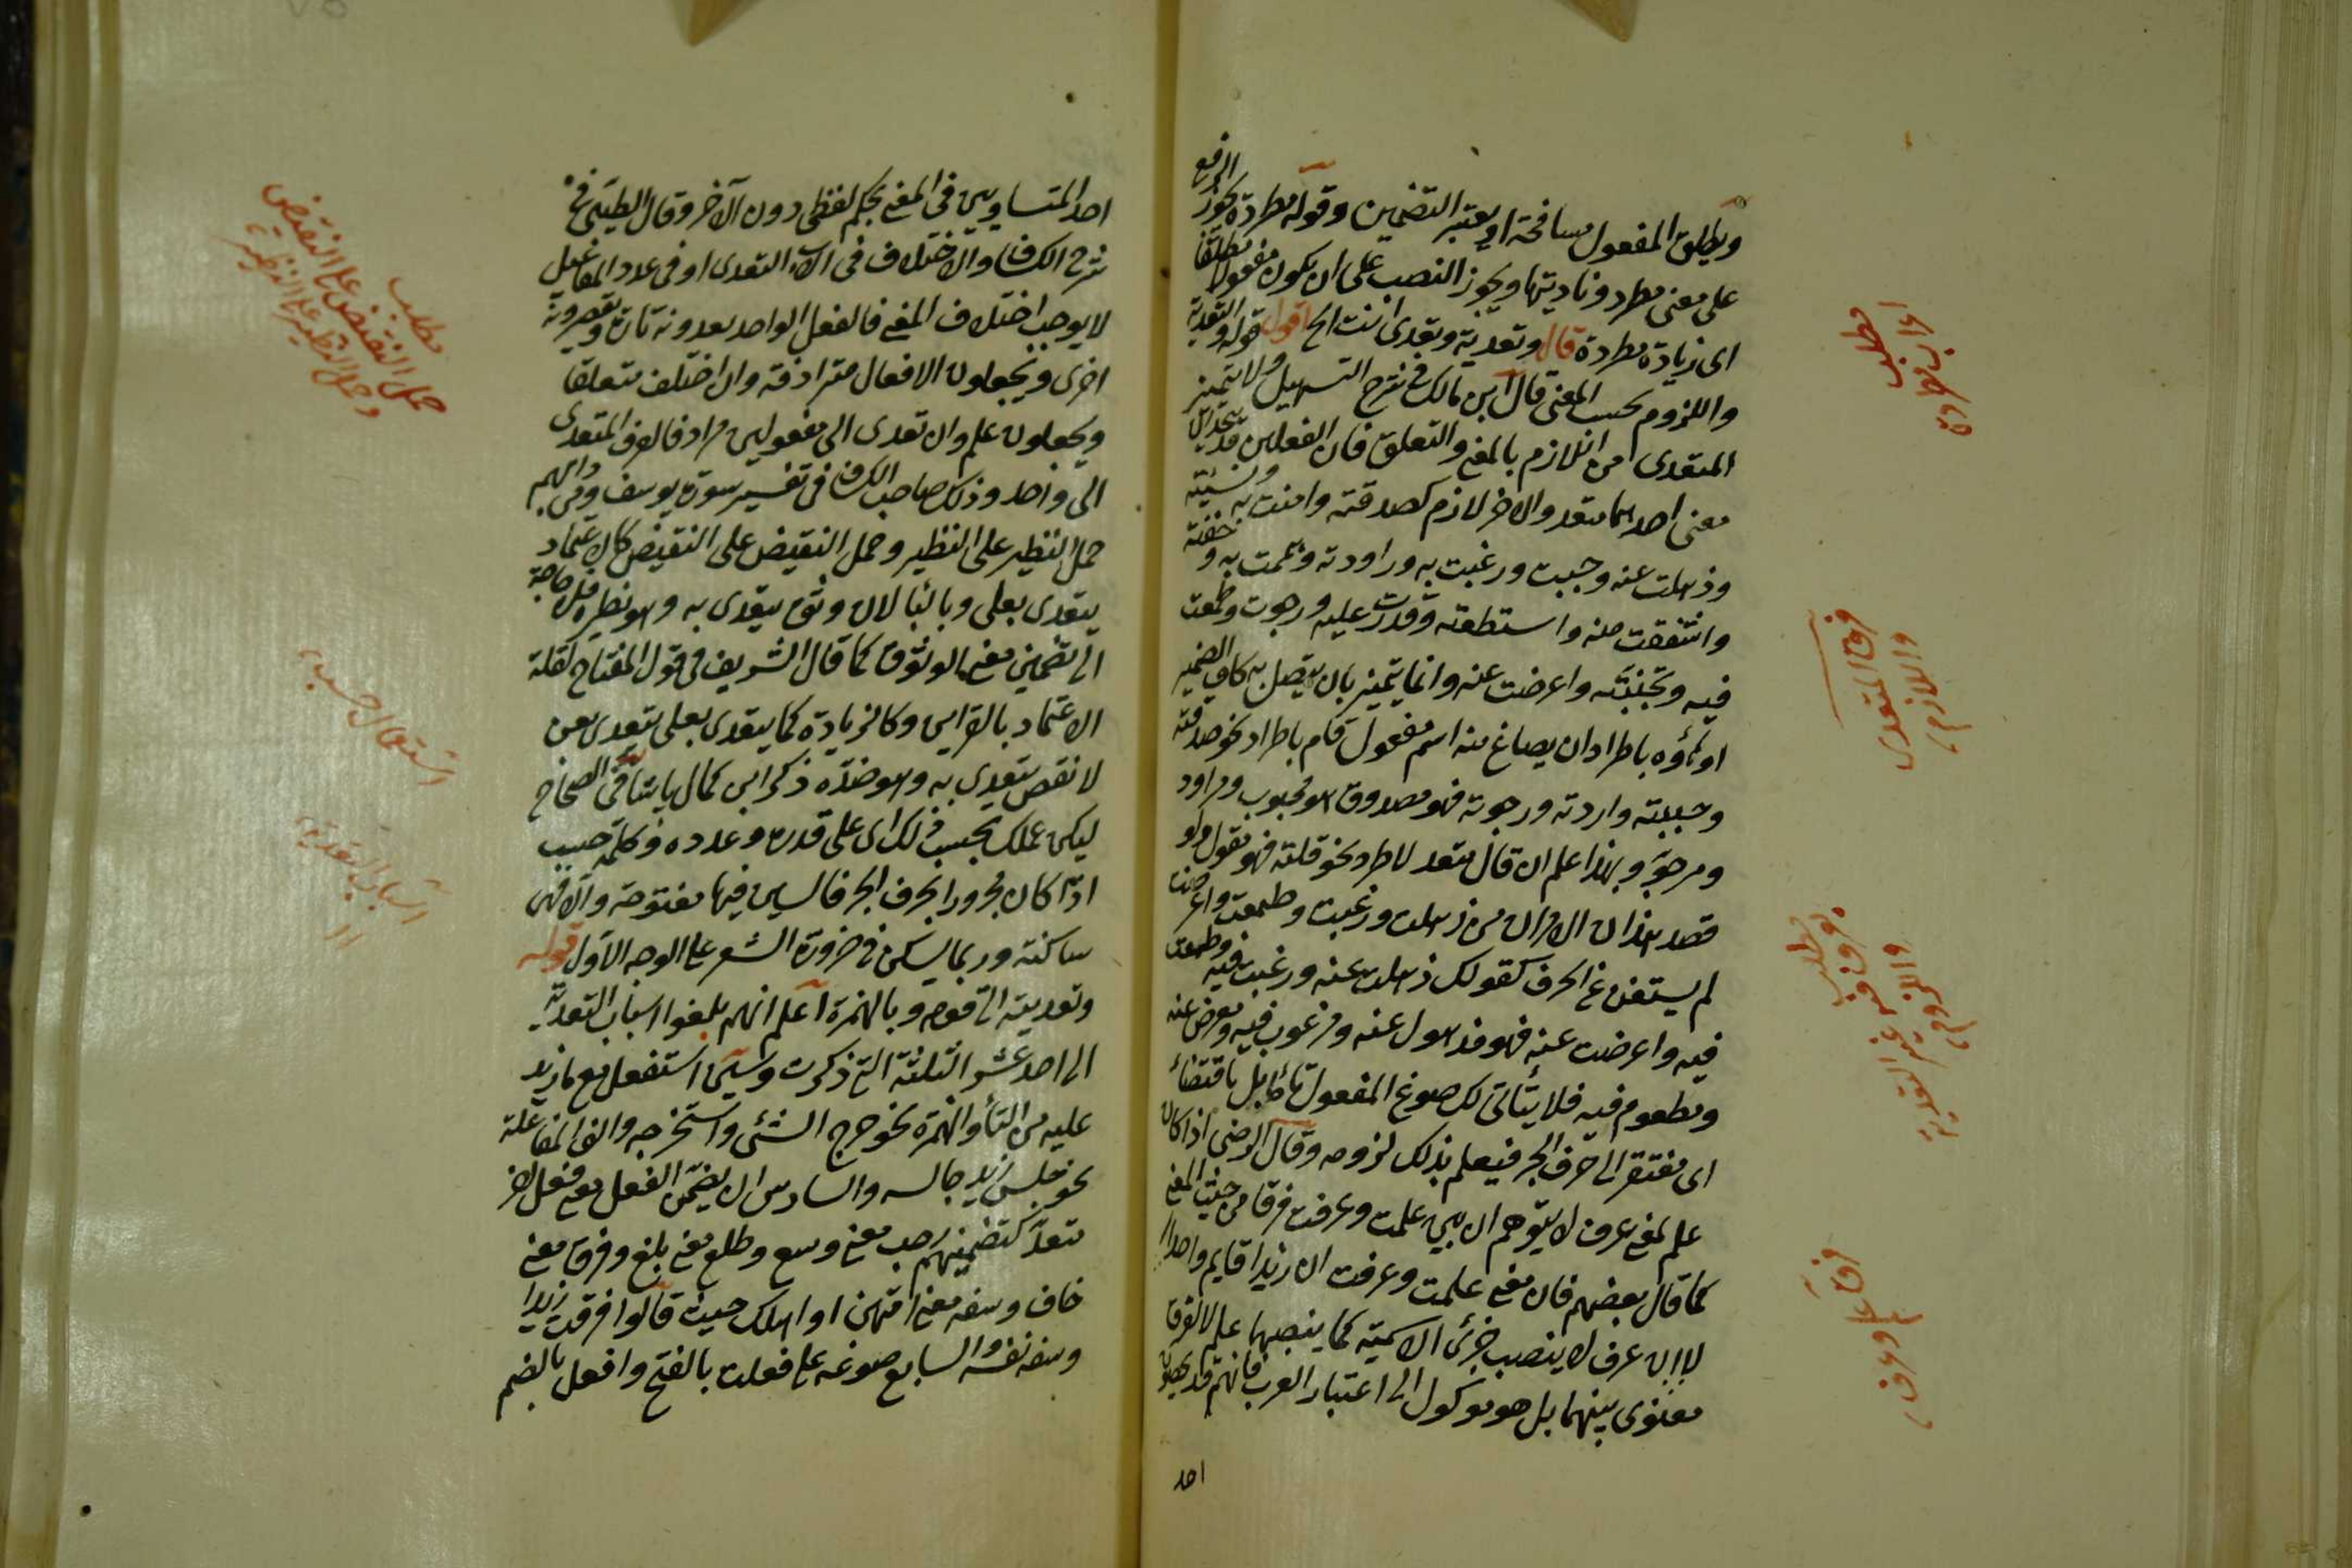 ويطلق المفعول مسافحة او يعتبر التضمين وقوله مطردة يجوز الرفع
على معنى مطرد وناديتها ويجوز النصب على ان يكون مفعولا مطلقا
اى زيادة مطردة قال وتعديته وتعدى انت الخ اقول قوله والتعدية
واللزوم بحسب المعنى قال ابن مالك فى شرح التسهيل ولا يتميز
المتعدى من اللازم بالمعنى والتعلق فان الفعلين قد يتحدان
معنى احدهما متعد والاخر لازم كصدقته وامنت به ونسيته
وذهلت عنه وحببت ورغبت به وراودته وهممت به وخفته
واشفقت منه واستطعته وقدرت عليه ورجوت وطمعت
فيه وتجنبته واعرضت عنه وانما يتميز بان يتصل به كاف الضمير
او هاؤه باطراد ان يصاغ منه اسم مفعول تام باطراد نحو صدقته
وحببته واردته ورجوته فهو مصدوق هو محبوب ومراود
ومرجو وبهذا علم ان قال متعد لاطراد نحو قلته فهو مقول ولو
قصد هذان الامران من ذهلت ورغبت وطمعت واعرضت
لم يستغن عن الحرف كقولك ذهلت عنه ورغبت فيه وطمعت
فيه واعرضت عنه فهو مذهول عنه ومرغوب فيه ومعرض عنه
ومطعوم فيه فلا يتأتى لك صوغ المفعول تاما بل باقتضاء
اى مفتقر الى حرف الجر فيعلم بذلك لزومه وقال الرضى اذا كان
علم لمعنى عرف لا يتوهم ان بين علمت وعرفت فرقا من حيث المعنى
كما قال بعضهم فان معنى علمت وعرفت ان زيدا قايم واحد
لا ان عرف لا ينصب جزئى الاسمية كما ينصبهما علم لا لفرق
معنوى بينهما بل هو موكول الى اعتبار العرب فانهم قد يخصون
احد
مطلب
فرق المتعدى
واللازم
مطلب
فرق علم وعرف
احد المتساويين فى المعنى بحكم لفظى دون الآخر وقال الطيبى فى
شرح الكشاف والاختلاف فى الات التعدى او فى عدد المفاعيل
لا يوجب اختلاف المعنى فالفعل الواحد يعدونه تارة ويقصرونه
اخرى ويجعلون الافعال مترادفة وان اختلف متعلقا
ويجعلون علم وان تعدى الى مفعولين مرادفا لعرف المتعدى
الى واحد وذلك صاحب الكشاف فى تفسير سورة يوسف ومن دابهم
حمل النظير على النظير وحمل النقيض على النقيض كالاعتماد
يتعدى بعلى وبالبا لان وثق يتعدى به وهو نظيره فلا حاجة
الى تضمين معنى الوثوق كما قال الشريف فى قول المفتاح لقلة
الاعتماد بالقراين وكالزيادة كما يتعدى بعلى يتعدى بعن
لا نقص يتعدى به وهو ضده ذكر ابن كمال پاشا فى الصحاح
ليكن عملك بحسب ذلك اى على قدره وعدده وكلمة حسب
اذا كان مجرورا بحرف الجر فالسين فيها مفتوحة والا فهى
ساكنة وربما يسكن فى ضرورة الشعر على الوجه الاول قوله
وتعديته الى قوله وبالهمزة اعلم انهم بلغوا اسباب التعدية
الى احد عشر الثلثة التى ذكرت وسين استفعل مع ما زيد
عليه من التأ والهمزة نحو خرج الشئ واستخرجه والف المفاعلة
نحو جلس زيد جالسه والسادس ان يضمن الفعل معنى فعل اخر
متعد كتضمينهم رحب معنى وسع وطلع معنى بلغ وفرق معنى
خاف وسفه معنى امتهن او اهلك حيث قالوا فرقت زيدا
وسفه نفسه والسابع صوغه على فعلت بالفتح وافعل بالضم
مطلب
حمل النقيض على النقيض
وحمل النظير على النظير
استعمال حسب
اسباب التعدية